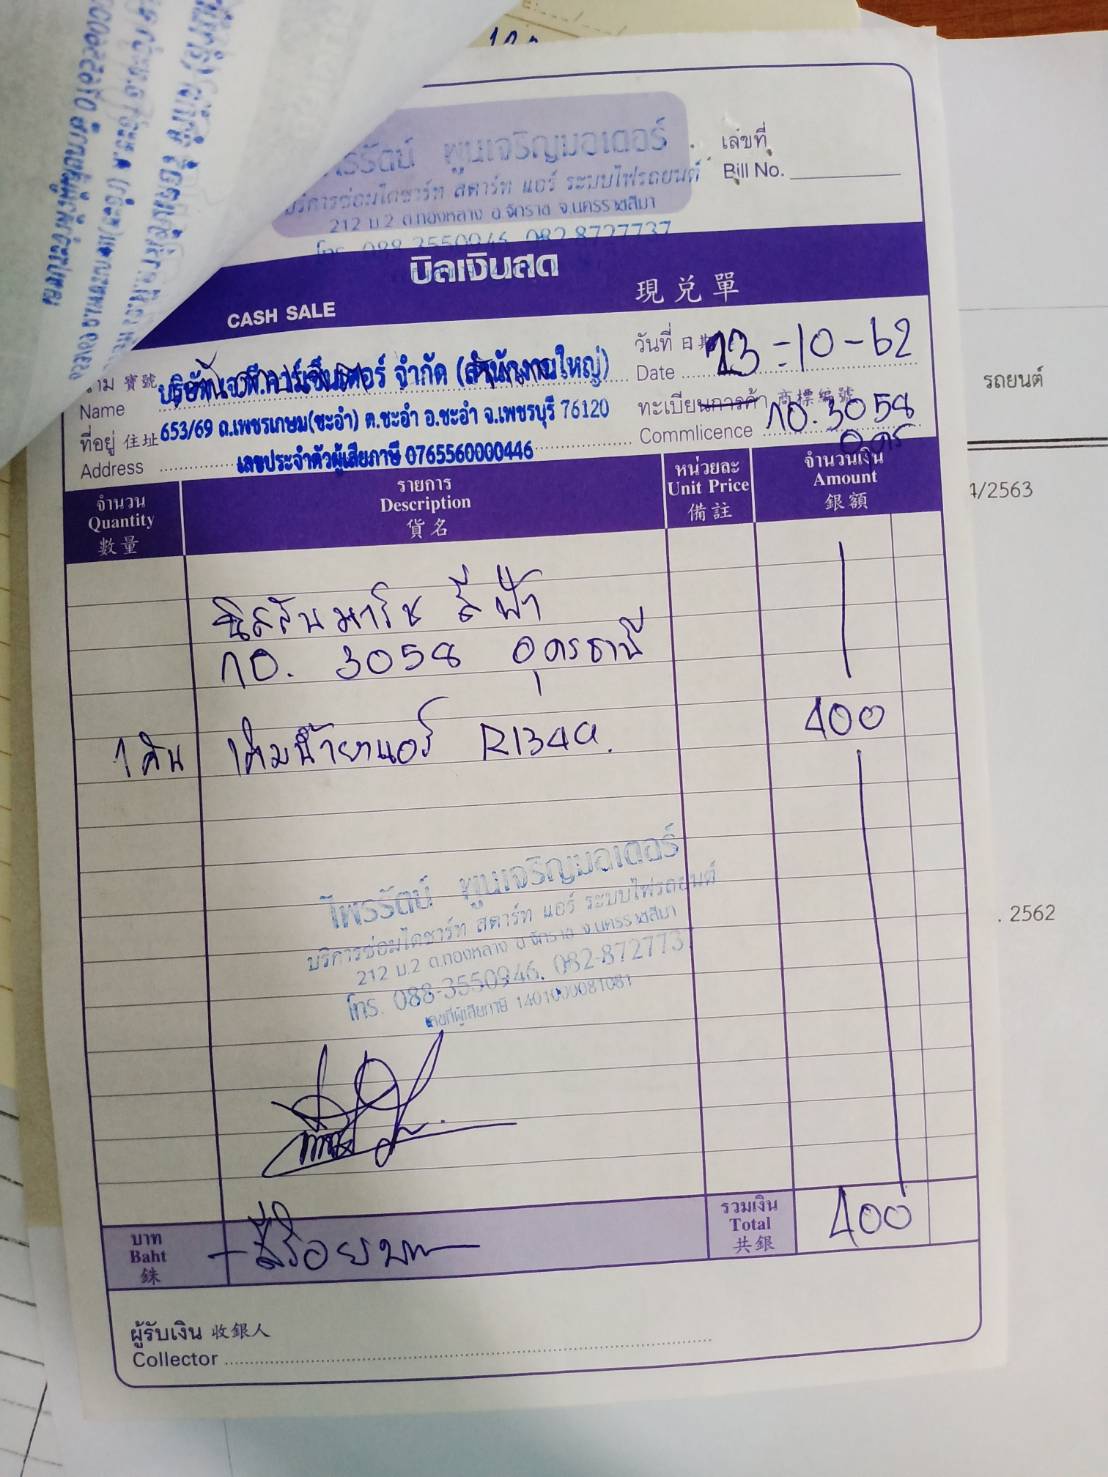 พูนเจริญมอเตอร์
บริการซ่อมไดชาร์ท สตาร์ท แอร์ ระบบไฟรถยนต์
212 ม.2 ต.ทองหลาง อ.จักราช จ.นครราชสีมา
โทร. 088-3550946, 082-8727737
เลขที่
Bill No.
บิลเงินสด
CASH SALE
現兌單
วันที่ 日期 23-10-62
Date
寶號 จำกัด (สำนักงานใหญ่)
Name
ที่อยู่ 住址 653/69 ถ.เพชรเกษม(ชะอำ) ต.ชะอำ อ.ชะอำ จ.เพชรบุรี 76120
Address เลขประจำตัวผู้เสียภาษี 0765560000446
ทะเบียนการค้า 商標編號
Commlicence 3058
อุดร
จำนวน
Quantity
數量
รายการ
Description
貨名
หน่วยละ
Unit Price
備註
จำนวนเงิน
Amount
銀額
นิสสันมาร์ช สีฟ้า
3058 อุดรธานี
1 คัน เติมน้ำยาแอร์ R134a. 400
ไพรรัตน์ พูนเจริญมอเตอร์
บริการซ่อมไดชาร์ท สตาร์ท แอร์ ระบบไฟรถยนต์
212 ม.2 ต.ทองหลาง อ.จักราช จ.นครราชสีมา
โทร. 088-3550946, 082-872773
เลขที่ผู้เสียภาษี 1401000081081
บาท
Baht
銖
-สี่ร้อยบาท-
รวมเงิน
Total
共銀
400
ผู้รับเงิน 收銀人
Collector
รถยนต์
/2563
. 2562